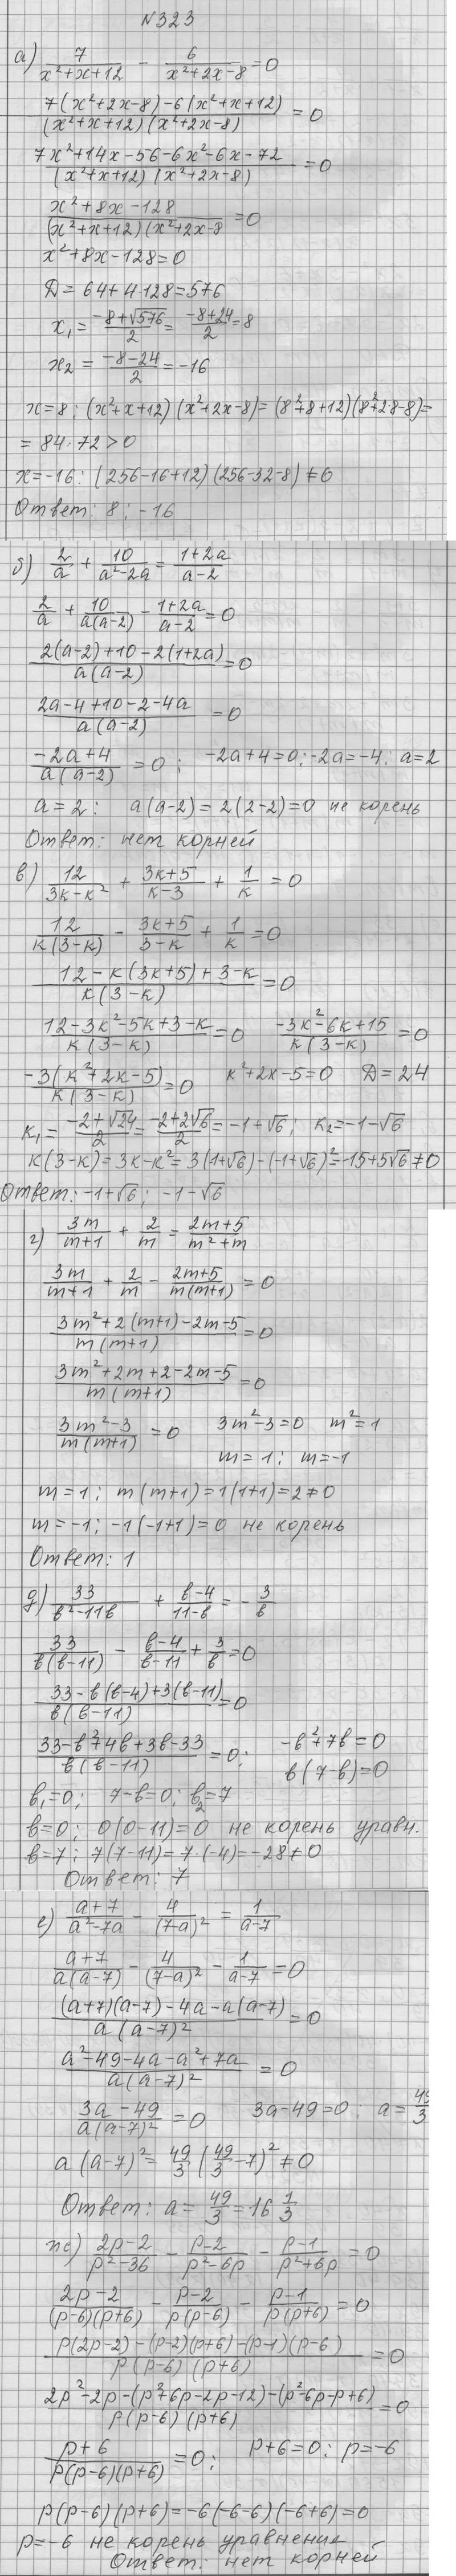 №323
а) 7/(x²+x+12) - 6/(x²+2x-8) = 0
(7(x²+2x-8)-6(x²+x+12))/((x²+x+12)(x²+2x-8)) = 0
(7x²+14x-56-6x²-6x-72)/((x²+x+12)(x²+2x-8)) = 0
(x²+8x-128)/((x²+x+12)(x²+2x-8) = 0
x²+8x-128=0
Д=64+4·128=576
x₁ = (-8+√576)/2 = (-8+24)/2 = 8
x₂ = (-8-24)/2 = -16
x=8; (x²+x+12)(x²+2x-8)=(8²+8+12)(8²+2·8-8)=
=84·72>0
x=-16: (256-16+12)(256-32-8)≠0
Ответ: 8; -16
б) 2/a + 10/(a²-2a) = (1+2a)/(a-2)
2/a + 10/(a(a-2)) - (1+2a)/(a-2) = 0
(2(a-2)+10-2(1+2a))/(a(a-2)) = 0
(2a-4+10-2-4a)/(a(a-2)) = 0
(-2a+4)/(a(a-2)) = 0; -2a+4=0; -2a=-4; a=2
a=2: a(a-2)=2(2-2)=0 не корень
Ответ: нет корней
в) 12/(3к-к²) + (3к+5)/(к-3) + 1/к = 0
12/(к(3-к)) - (3к+5)/(3-к) + 1/к = 0
(12-к(3к+5)+3-к)/(к(3-к)) = 0
(12-3к²-5к+3-к)/(к(3-к)) = 0 (-3к²-6к+15)/(к(3-к)) = 0
(-3(к²+2к-5))/(к(3-к)) = 0 к²+2к-5=0 Д=24
к₁ = (-2+√24)/2 = (-2+2√6)/2 = -1+√6; к₂=-1-√6
к(3-к)=3к-к²=3(1+√6)-(-1+√6)²=-15+5√6≠0
Ответ: -1+√6; -1-√6
г) 3m/(m+1) + 2/m = (2m+5)/(m²+m)
3m/(m+1) + 2/m - (2m+5)/(m(m+1)) = 0
(3m²+2(m+1)-2m-5)/(m(m+1)) = 0
(3m²+2m+2-2m-5)/(m(m+1)) = 0
(3m²-3)/(m(m+1)) = 0 3m²-3=0 m²=1
m=1; m=-1
m=1; m(m+1)=1(1+1)=2≠0
m=-1; -1(-1+1)=0 не корень
Ответ: 1
д) 33/(в²-11в) + (в-4)/(11-в) = -3/в
33/(в(в-11)) - (в-4)/(в-11) + 3/в = 0
(33-в(в-4)+3(в-11))/(в(в-11)) = 0
(33-в²+4в+3в-33)/(в(в-11)) = 0; -в²+7в=0
в(7-в)=0
в₁=0; 7-в=0; в₂=7
в=0; 0(0-11)=0 не корень уравн.
в=7; 7(7-11)=7·(-4)=-28≠0
Ответ: 7
е) (a+7)/(a²-7a) - 4/(7-a)² = 1/(a-7)
(a+7)/(a(a-7)) - 4/(7-a)² - 1/(a-7) = 0
((a+7)(a-7)-4a-a(a-7))/(a(a-7)²) = 0
(a²-49-4a-a²+7a)/(a(a-7)²) = 0
(3a-49)/(a(a-7)²) = 0 3a-49=0: a=49/3
a(a-7)² = 49/3(49/3-7)²≠0
Ответ: a=49/3=16 1/3
ж) (2p-2)/(p²-36) - (p-2)/(p²-6p) - (p-1)/(p²+6p) = 0
(2p-2)/((p-6)(p+6)) - (p-2)/(p(p-6)) - (p-1)/(p(p+6)) = 0
(p(2p-2)-(p-2)(p+6)-(p-1)(p-6))/(p(p-6)(p+6)) = 0
(2p²-2p-(p²+6p-2p-12)-(p²-6p-p+6))/(p(p-6)(p+6)) = 0
(p+6)/(p(p-6)(p+6)) = 0; p+6=0: p=-6
p(p-6)(p+6)=-6(-6-6)(-6+6)=0
p=-6 не корень уравнение
Ответ: нет корней